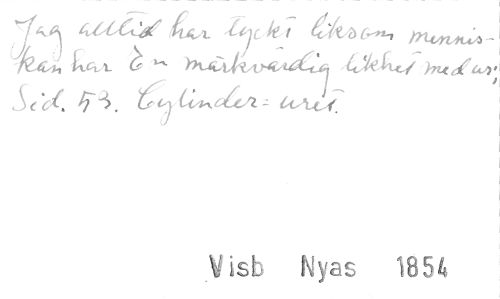 Jag alltid har tyckt liksom mennis-
kan har En märkvärdig likhet med ur;
Sid. 53. Cylinder=uret.
Visb Nyas 1854